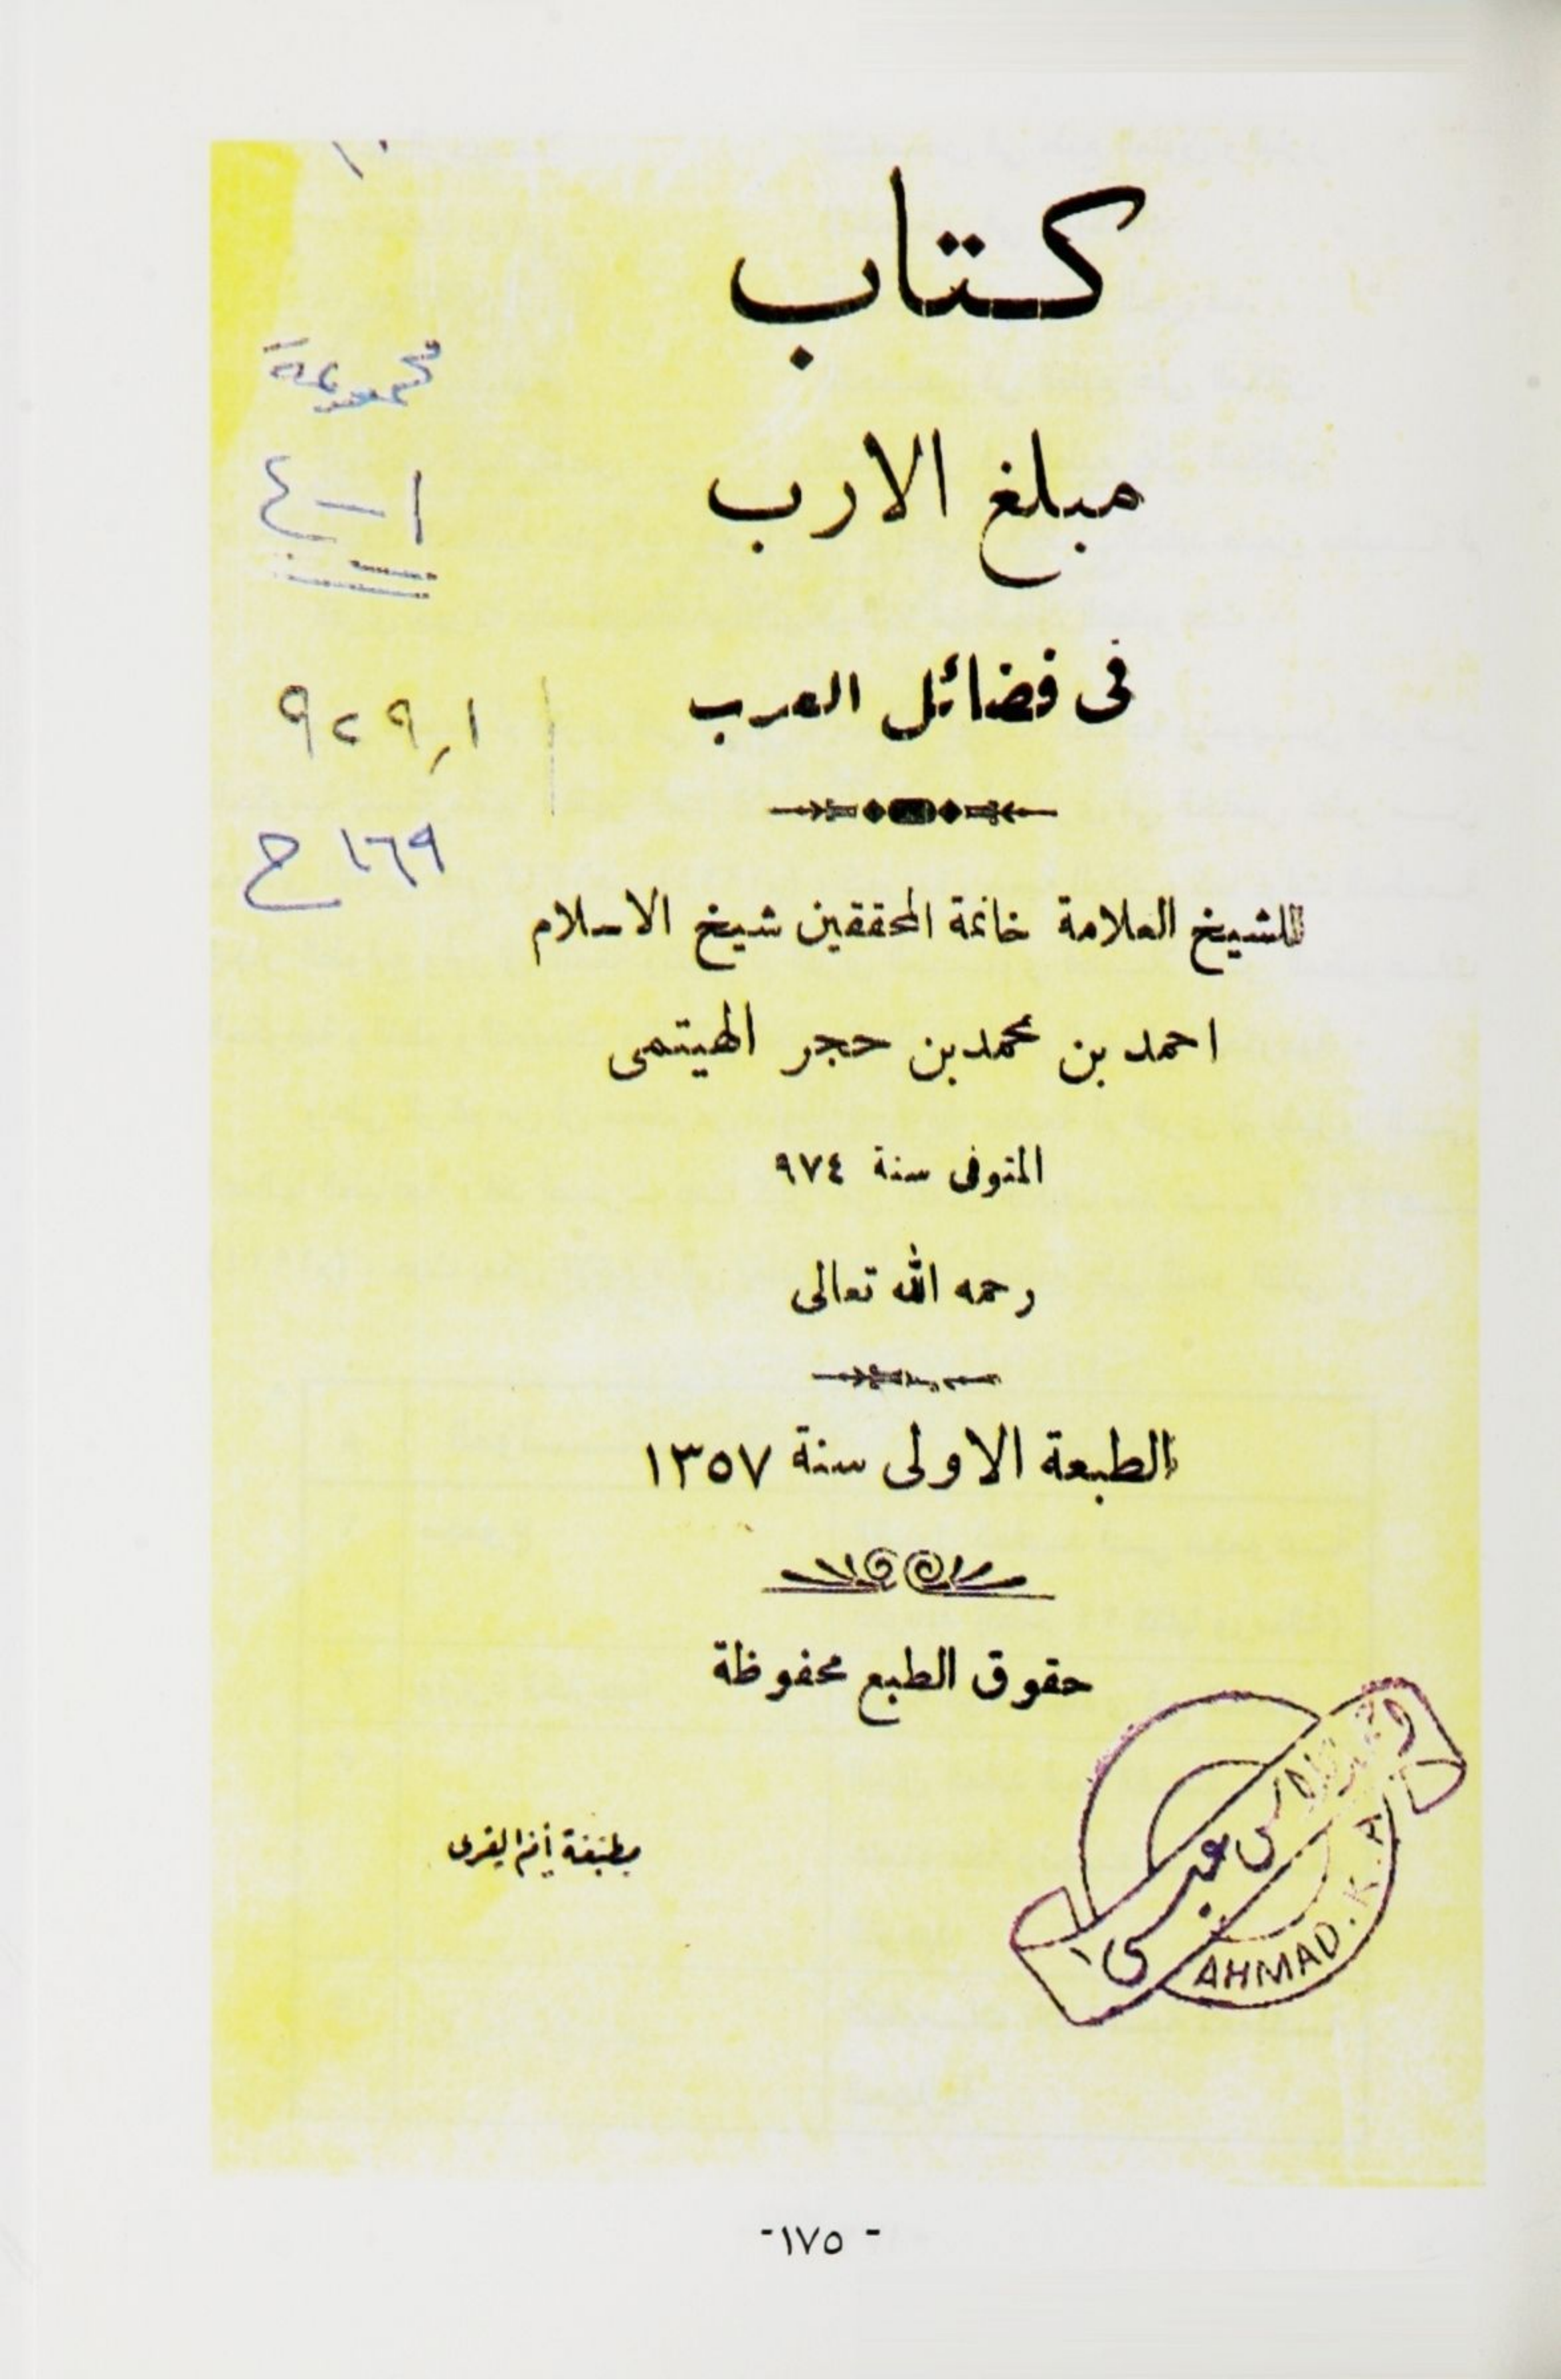 كتاب
مبلغ الارب
فى فضائل العرب
للشيخ العلامة خاتمة المحققين شيخ الاسلام
احمد بن محمد بن حجر الهيتمى
المتوفى سنة ٩٧٤
رحمه الله تعالى
الطبعة الاولى سنة ١٣٥٧
حقوق الطبع محفوظة
مطبعة أم القرى
مجموعة
١-٤
٩٢٩,١
١٦٩ ح
عباس
AHMAD.K.A
-١٧٥ -